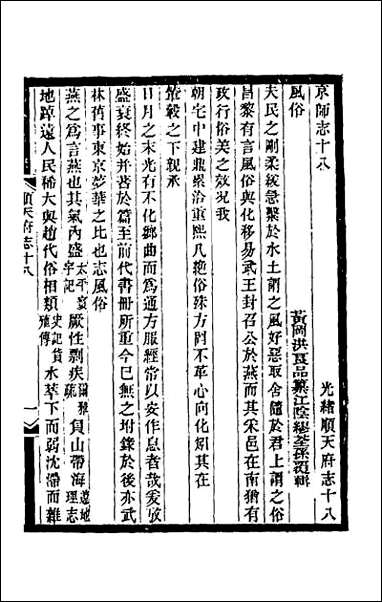 光緒順天府志十八
京師志十八
黃岡洪良品纂江陰繆荃孫覆輯
風俗
夫民之剛柔緩急繫於水土謂之風好惡取舍隨於君上謂之俗
昌黎有言風俗與化移易武王封召公於燕而其采邑在南猶有
政行俗美之效況我
朝宅中建鼎累洽重熙凡絶俗殊方罔不革心向化矧其在
輦轂之下親承
日月之末光有不化鄉曲而爲通方服經常以安作息者哉爰攷
盛衰終始并著於篇至前代書冊所重今已無之坿錄於後亦武
林舊事東京夢華之比也志風俗
燕之爲言燕也其氣內盛太平寰宇記厥性剽疾爾雅疏負山帶海遼地理志
地踔遠人民稀大與趙代俗相類史記貨殖傳水萃下而弱沈滯而雜
順天府志十八
一